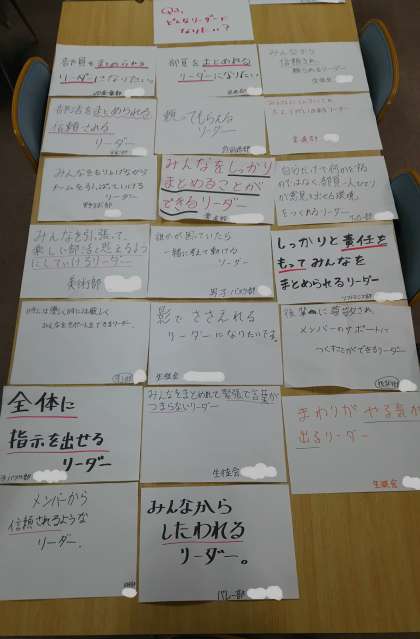 Q3.
どんなリーダーに
なりたい…？
部員をまとめられる
リーダーになりたい。
部員をまとめれる
リーダーになりたい。
みんなから
信頼され
頼られるリーダー
生徒会
部活をまとめられる
信頼される
リーダー
頼ってもらえる
リーダー
みんなをしっかり
まとめることが
できるリーダー
リーダー
野球部
自分だけで何かを頑
をつくれるリーダー
サッカー部
みんなを引っ張って、
楽しい部活と思えるよう
にしていけるリーダー
美術部
誰かが困っていたら
一緒に考えて動ける
リーダー
男子バスケ部
しっかりと責任を
もってみんなを
まとめられるリーダー
ソフトテニス部
時には優しく時には厳しく
みんなをサポートできるリーダー。
影でささえれる
リーダーになりたいです。
生徒会
メンバーのサポートに
つくすことができるリーダー
全体に
指示を出せる
リーダー
みんなをまとめれて緊張で言葉が
つまらないリーダー
生徒会
まわりがやる気が
出るリーダー
生徒会
メンバーから
信頼されるような
リーダー。
みんなから
したわれる
リーダー。
バレー部